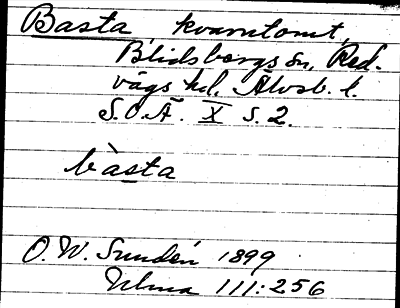 Basta, kvarntomt,
Blidsbergs sn, Red-
vägs hd, Älvsb. l.
S.O.Ä. X s. 2.
bàsta
O. W. Sundén 1899
Ulma 111:256